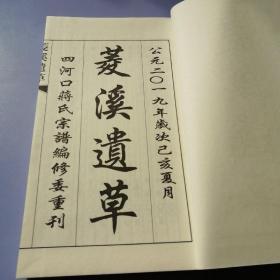 公元二〇一九年歲次己亥夏月
菱溪遺草
四河口蔣氏宗譜編修委重刊